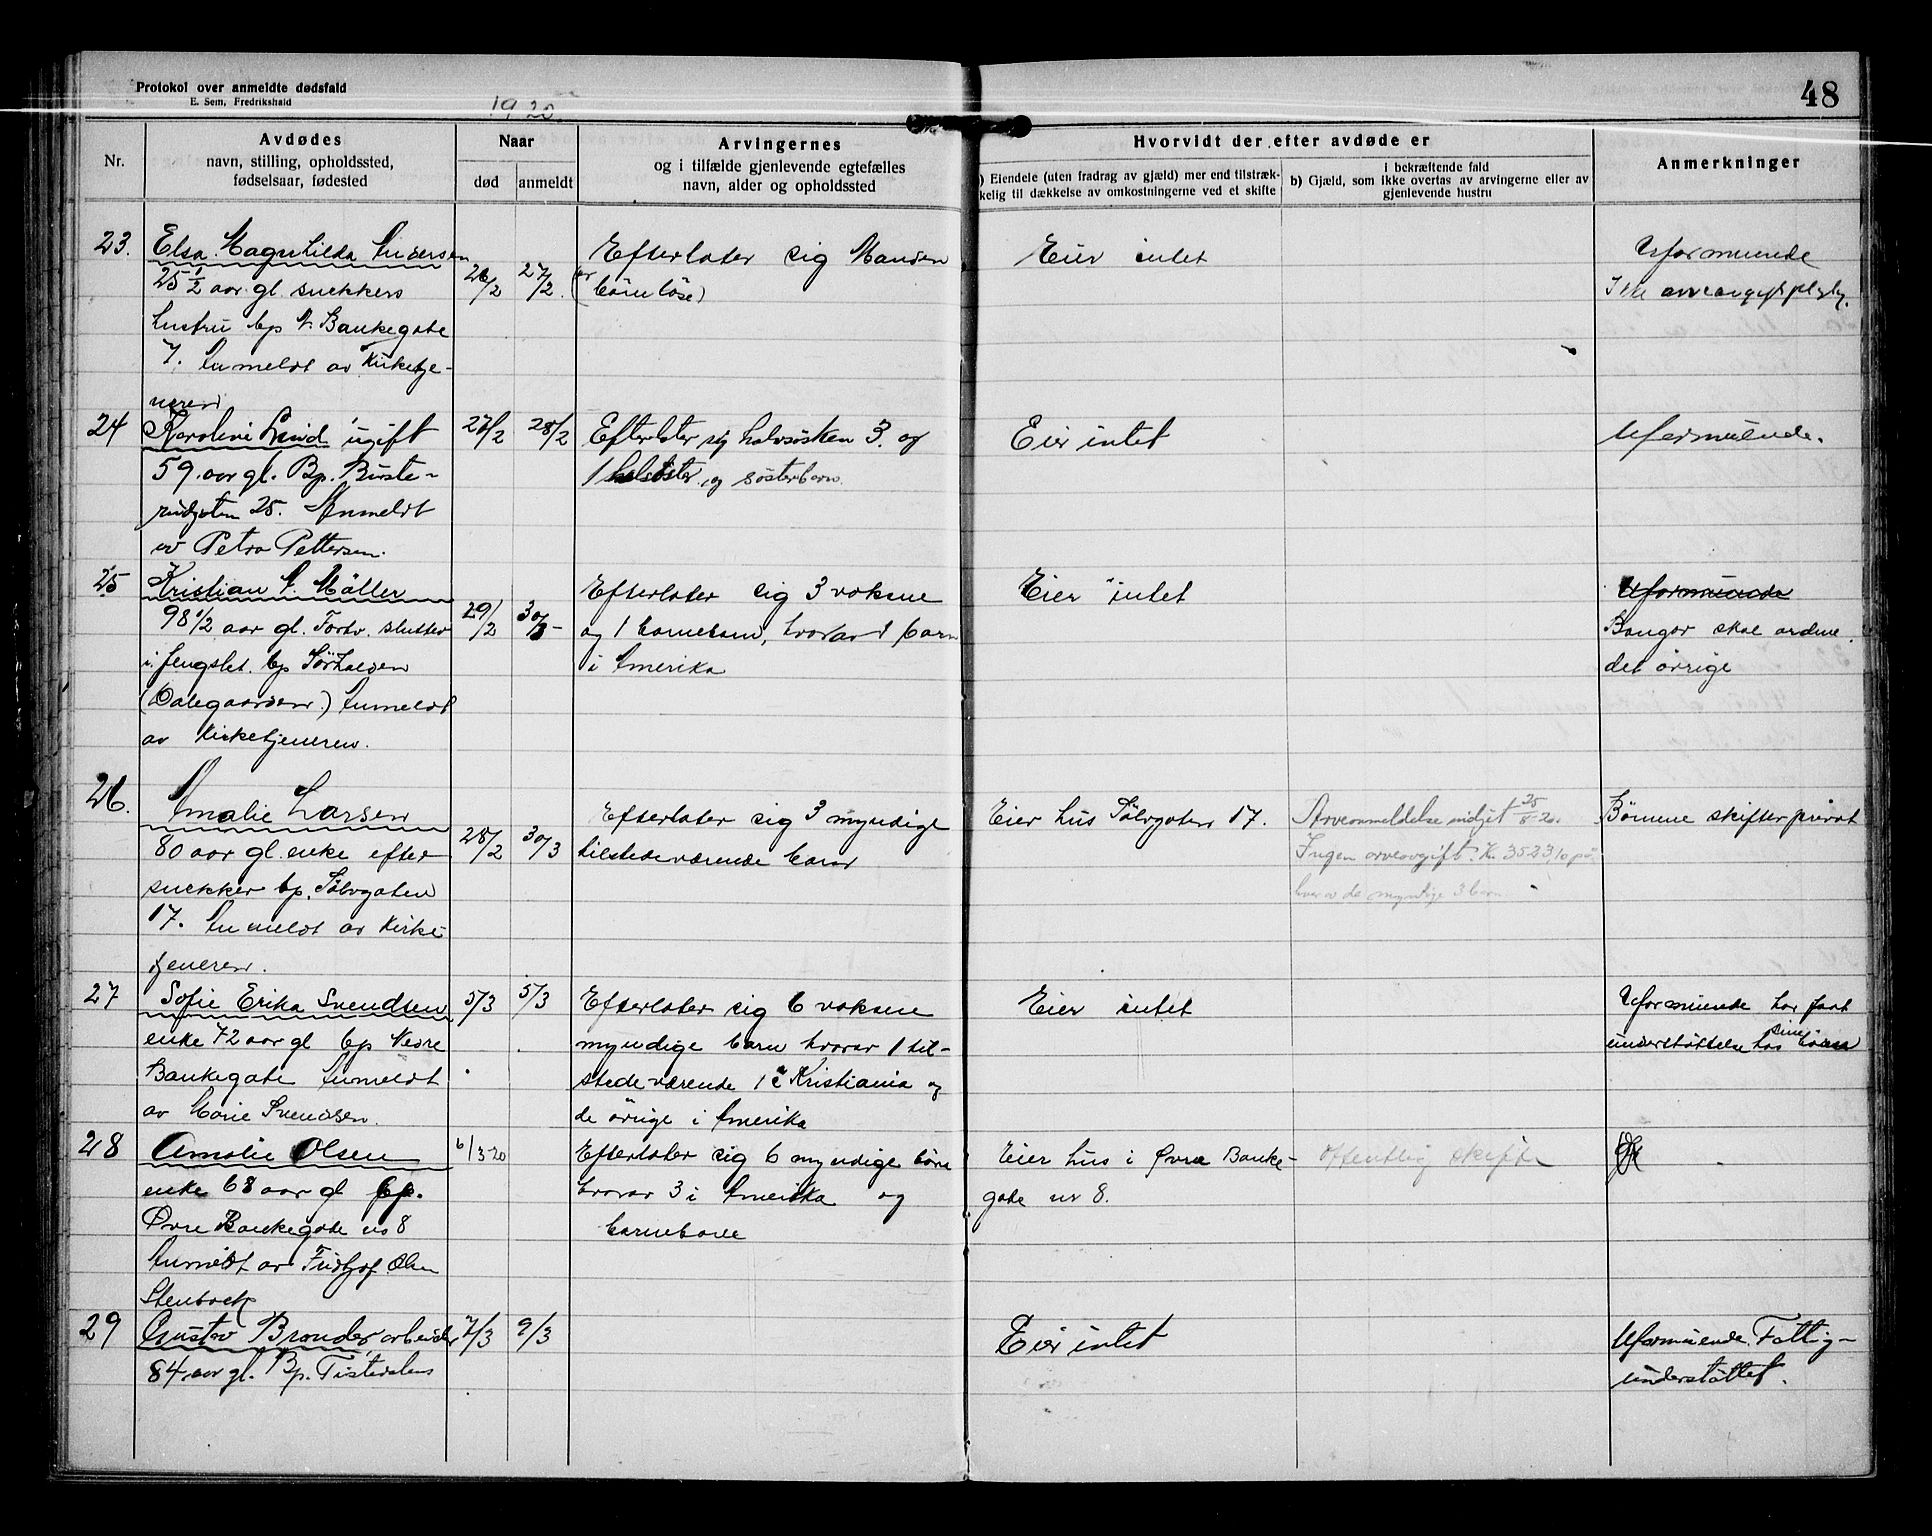 Protokol over anmeldte dødsfald
E. Sem, Fredrikshald
1920
48
Nr.
Avdødes
navn, stilling, opholdssted,
fødselsaar, fødested
Naar
død
anmeldt
Arvingernes
og i tilfælde gjenlevende egtefælles
navn, alder og opholdssted
Hvorvidt der efter avdøde er
) Eiendele (uten fradrag av gjæld) mer end tilstræk-
kelig til dækkelse av omkostningerne ved et skifte
i bekræftende fald
b) Gjæld, som ikke overtas av arvingerne eller av
gjenlevende hustru
Anmerkninger
23.
Elsa Magnhilda Andersen
25 1/2 aar gl. snekkers
hustru bp N. Bankegate
7. Anmeldt av Kirketje-
neren
26/2
27/2.
Efterlater sig Manden
(er barnløse)
Eier intet
Uformuende
Ikke arveavgiftpligtig.
24
Karoline Lund ugift
59. aar gl. Bp. Buste-
rudgaten 25. Anmeldt
av Petra Pettersen.
27/2
28/2
Efterlater sig halvsøsken 3. og
1 helsøster og søsterbarn
Eier intet
Uformuende.
25
Kristian A. Møller
98 1/2 aar gl. Forhv. slutter
i fengslet. bp Sørhalden
(Dalegaarden.) Anmeldt
av Kirketjeneren.
29/2
30/3-
Efterlater sig 3 voksne
og 1 barnebarn, hvorav 1 barn
i Amerika
Eier intet
Uformuende
Bangor skal ordne.
det øvrige
26.
Amalie Larsen
80 aar gl. enke efter
snekker bp. Sølvgaten
17. Anmeldt av Kirke-
tjeneren.
28/2
30/3
Efterlater sig 3 myndige
tilstedeværende barn
Eier hus Sølvgaten 17.
Arveanmeldelse indgit 25/8-20.
Ingen arveavgift. Kr. 3523,10 på
hver av de myndige 3 barn
Børnene skifter privat
27
Sofie Erika Svendsen
enke 72 aar gl bp Nedre
Bankegate Anmeldt
av Marie Svendsen.
5/3
5/3
Efterlater sig 6 voksne
myndige barn hvorav 1 til-
stedeværende 1 i Kristiania og
de øvrige i Amerika
Eier intet
Uformuende har faat
understøttelse hos sine børn
28
Amalie Olsen
enke 68 aar gl bp.
Øvre Bankegate no 8
Anmeldt av Fridtjof Olsen
Stenbock
6/3-20
Efterlater sig 6 myndige børn
hvorav 3 i Amerika og
barnebarn
Eier hus i Øvre Banke-
gate nr 8.
Offentlig skifte
29
Gustav Brander, arbeider
84. aar gl. Bp. Tistedalen
7/3
9/3
Eier intet
Uformuende. Fattig-
understøttet.